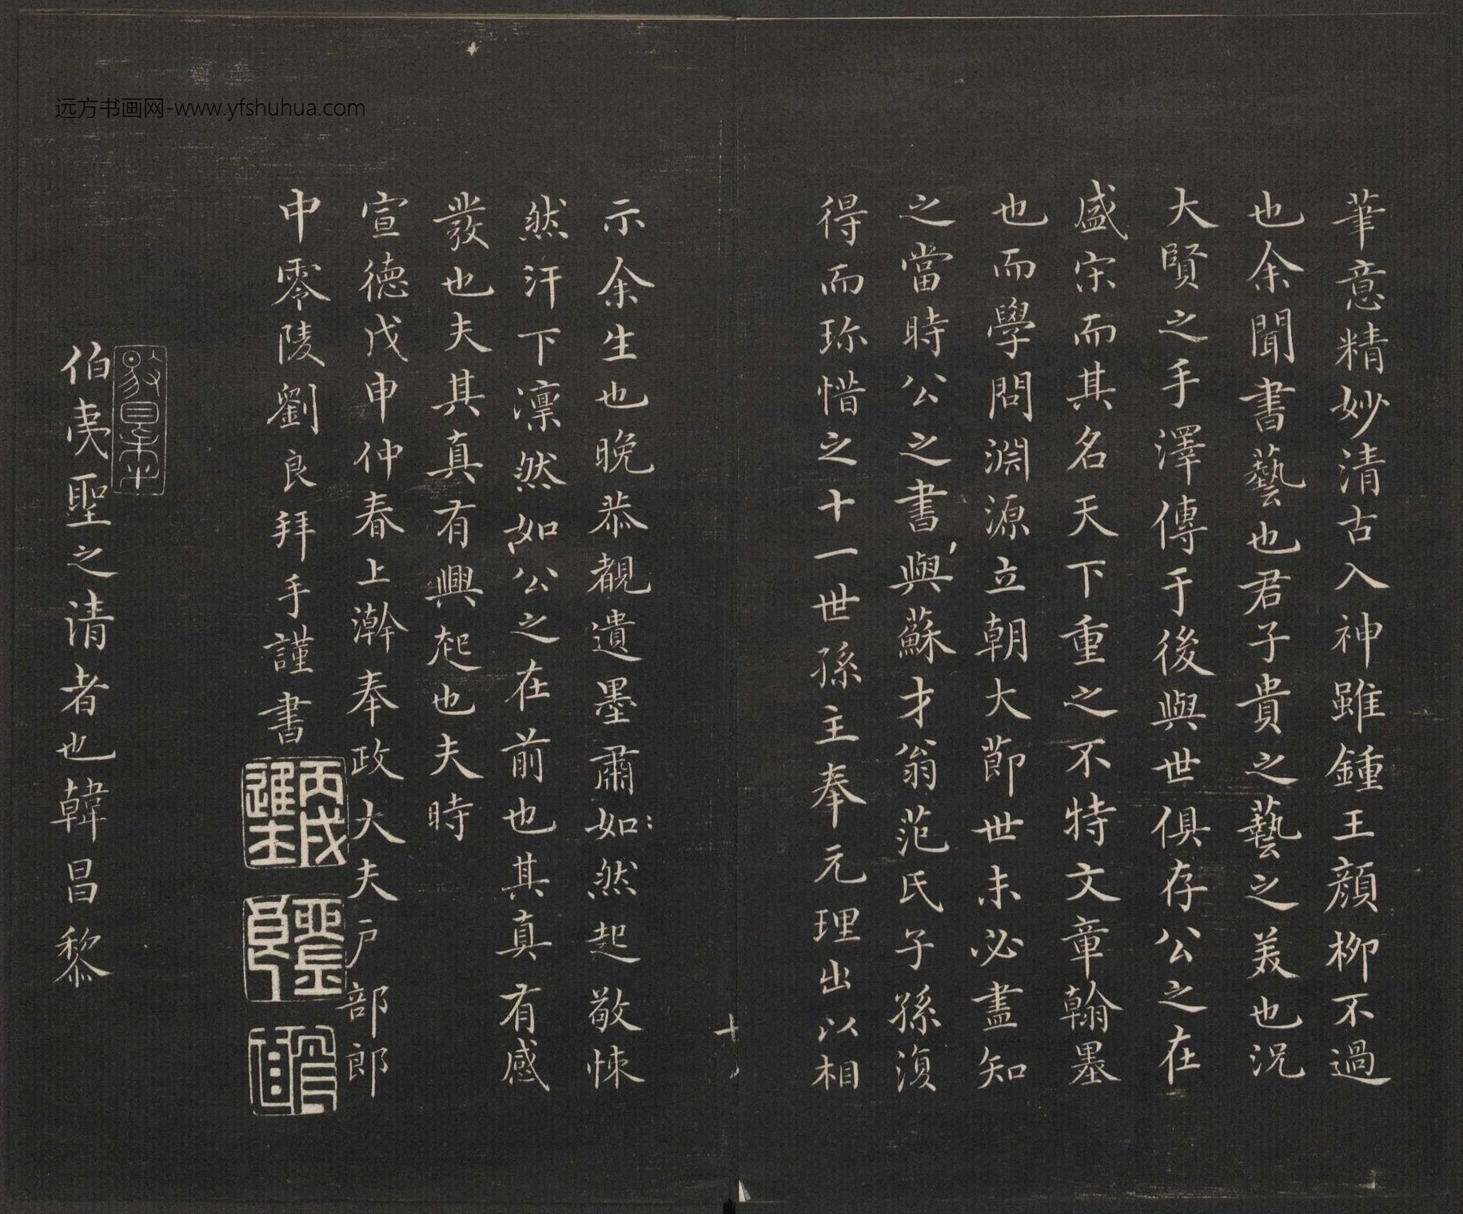 远方书画网-www.yfshuhua.com
筆意精妙清古入神雖鍾王顏柳不過
也余聞書藝也君子貴之藝之美也況
大賢之手澤傳于後與世俱存公之在
盛宋而其名天下重之不特文章翰墨
也而學問淵源立朝大節世未必盡知
之當時公之書與蘇才翁范氏子孫復
得而珎惜之十一世孫主奉元理出以相
示余生也晚恭覩遺墨肅如然起敬悚
然汗下凛然如公之在前也其真有感
發也夫其真有興起也夫時
宣德戊申仲春上澣奉政大夫戶部郎
中零陵劉良拜手謹書
丙戌進士
伯夷聖之清者也韓昌黎